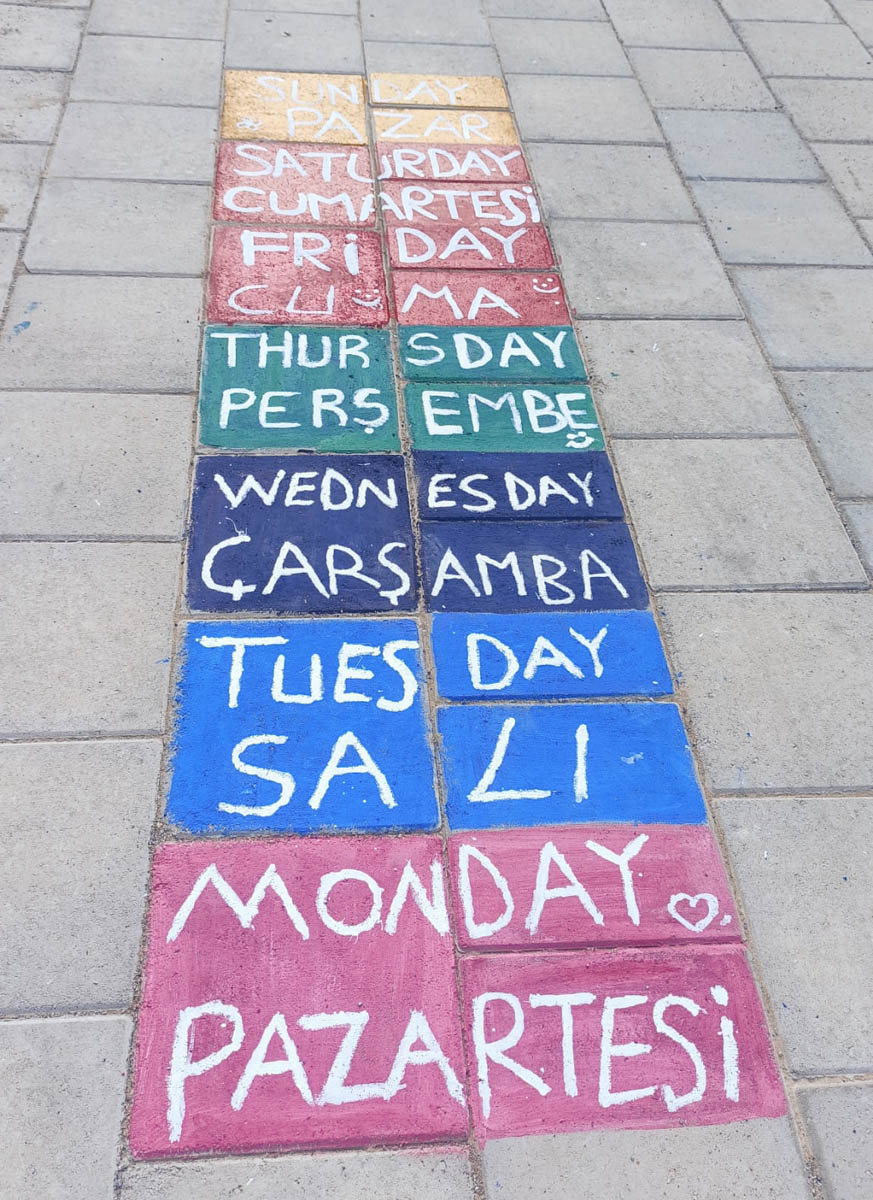 SUNDAY
PAZAR
SATURDAY
CUMARTESİ
FRİDAY
CUMA
THURSDAY
PERŞEMBE
WEDNESDAY
ÇARŞAMBA
TUESDAY
SALI
MONDAY
PAZARTESİ